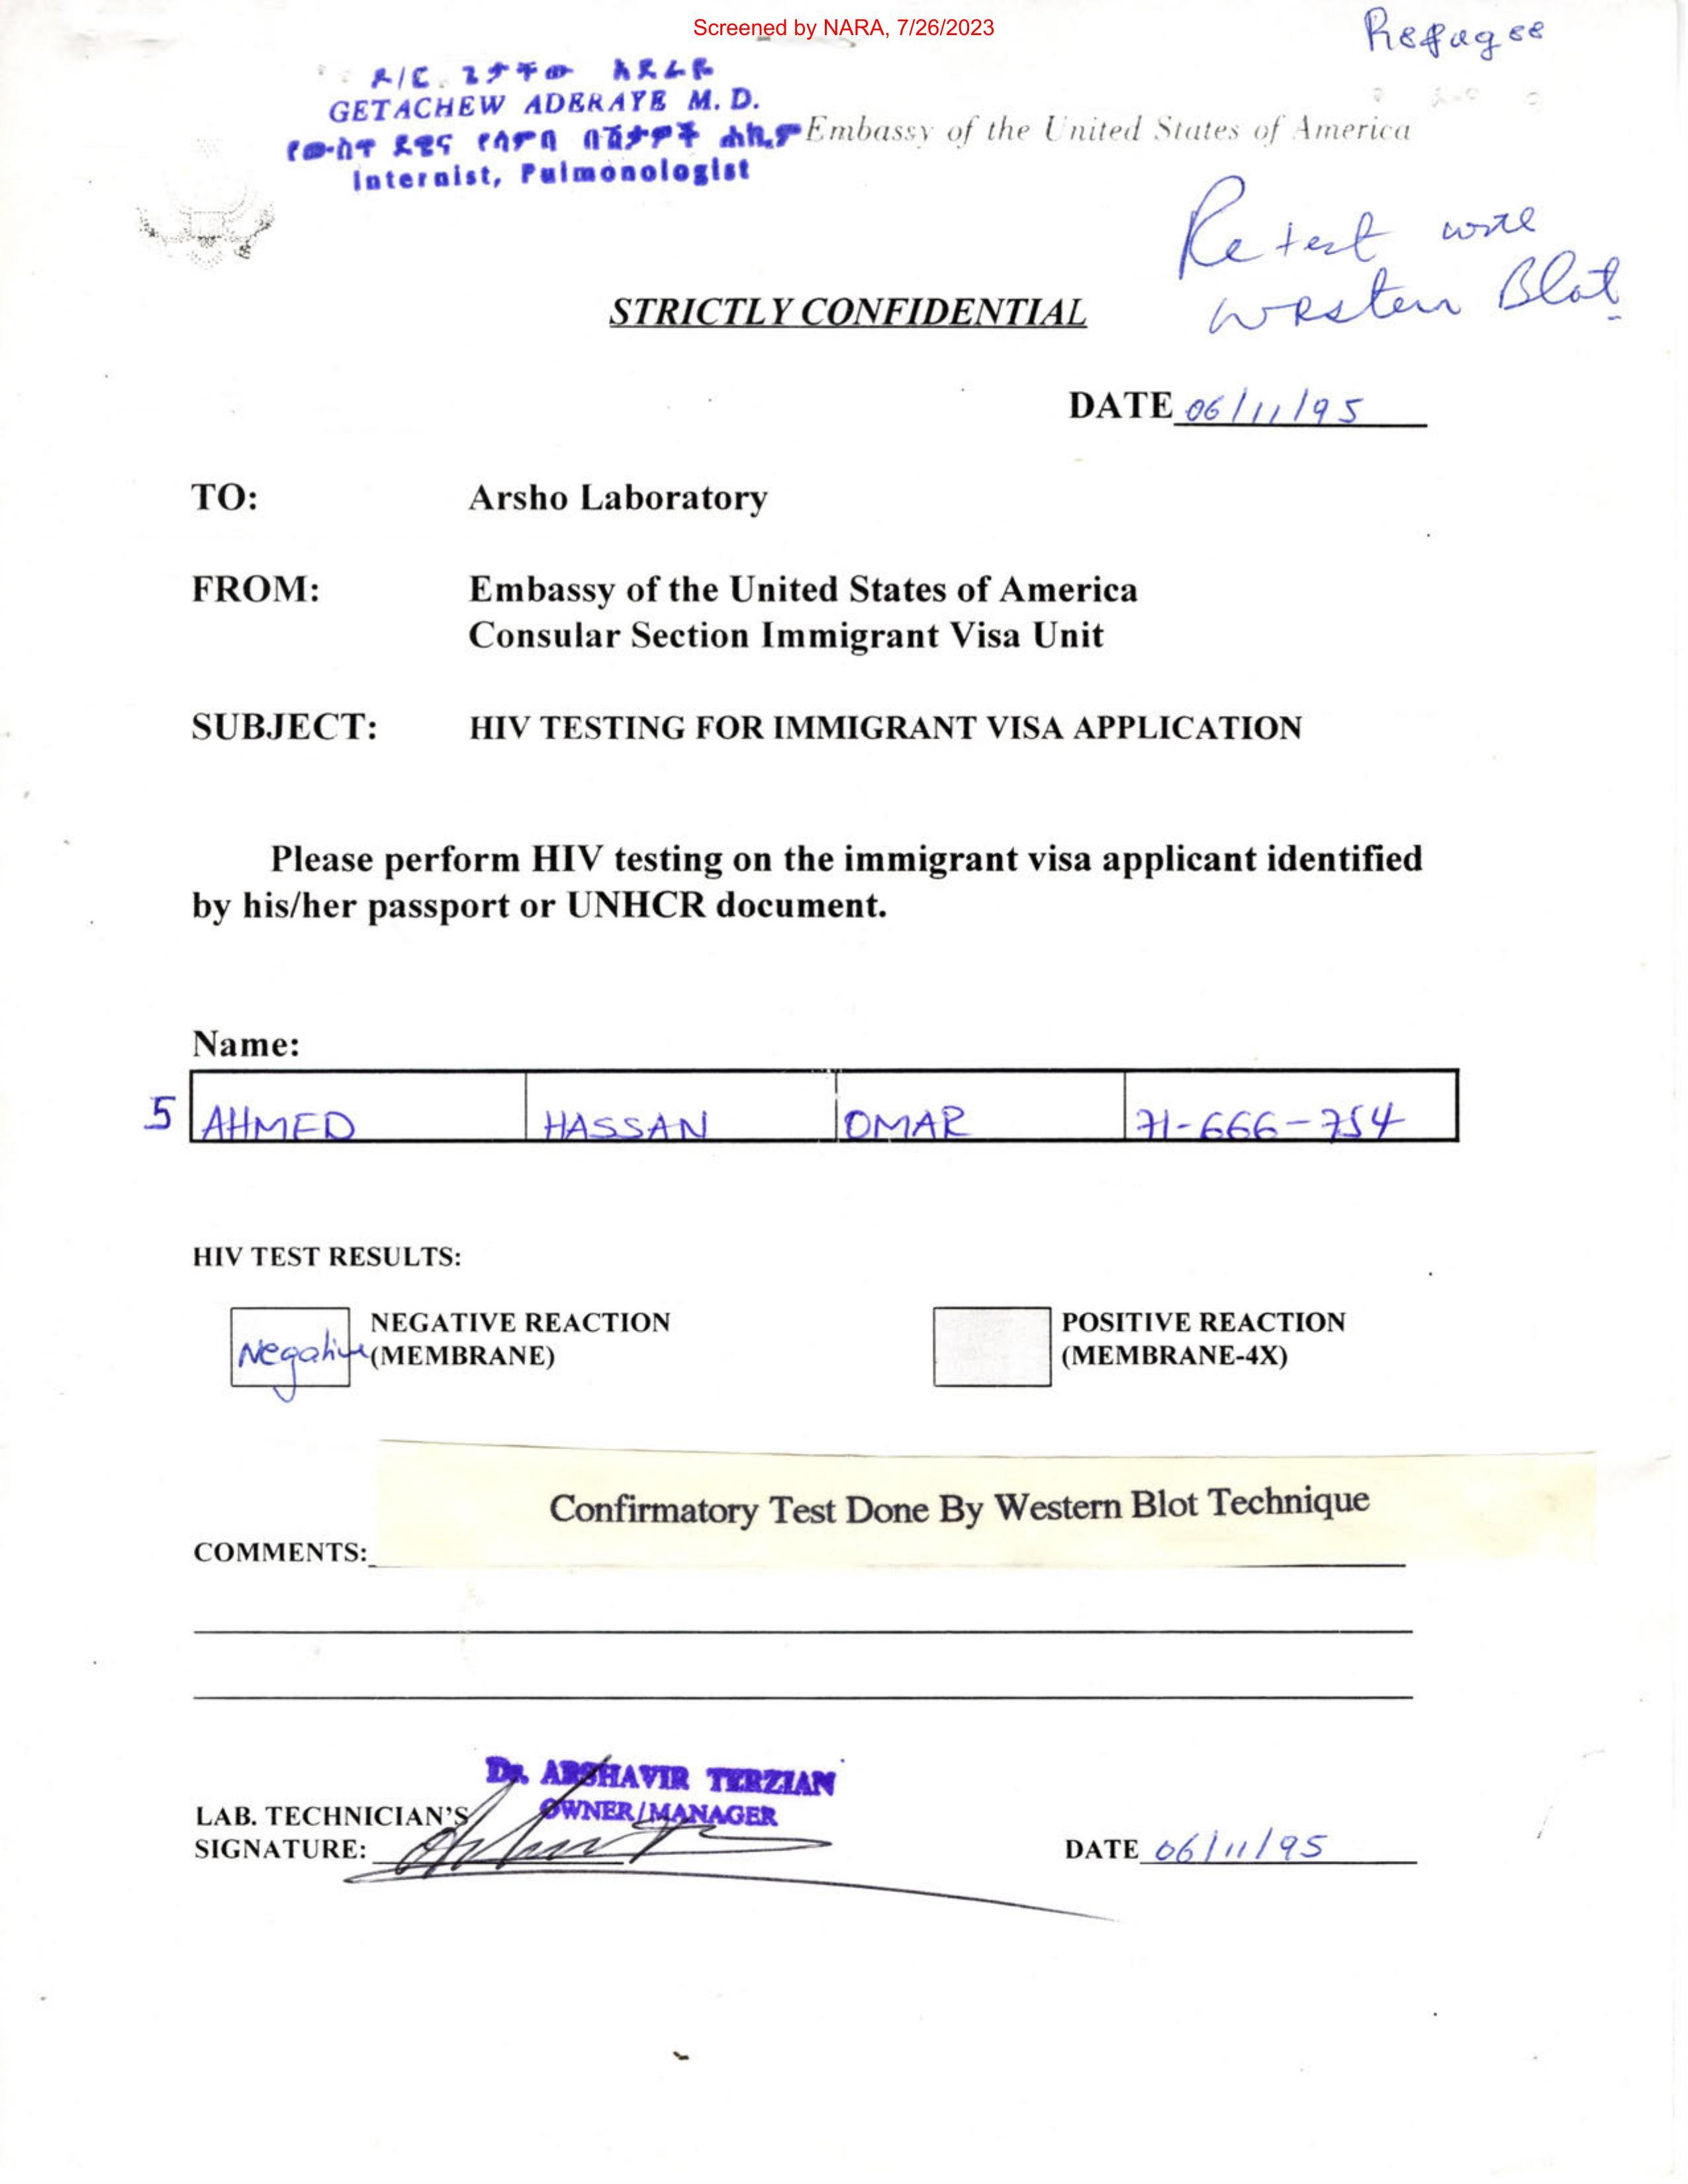 Screened by NARA, 7/26/2023
Refugee
ዶ/ር. ጌታቸው አደራዬ
GETACHEW ADERAYE M. D.
የውስጥ ደዌና የሳምባ በሽታዎች ሐኪም
Internist, Pulmonologist
Embassy of the United States of America
Retest
Western Blot
STRICTLY CONFIDENTIAL
DATE 06/11/95
TO: Arsho Laboratory
FROM: Embassy of the United States of America
Consular Section Immigrant Visa Unit
SUBJECT: HIV TESTING FOR IMMIGRANT VISA APPLICATION
Please perform HIV testing on the immigrant visa applicant identified
by his/her passport or UNHCR document.
Name:
5 AHMED HASSAN OMAR 71-666-754
HIV TEST RESULTS:
NEGATIVE REACTION POSITIVE REACTION
Negative (MEMBRANE) (MEMBRANE-4X)
Confirmatory Test Done By Western Blot Technique
COMMENTS:
Dr. ARSHAVIR TERZIAN
OWNER/MANAGER
LAB. TECHNICIAN'S
SIGNATURE: DATE 06/11/95